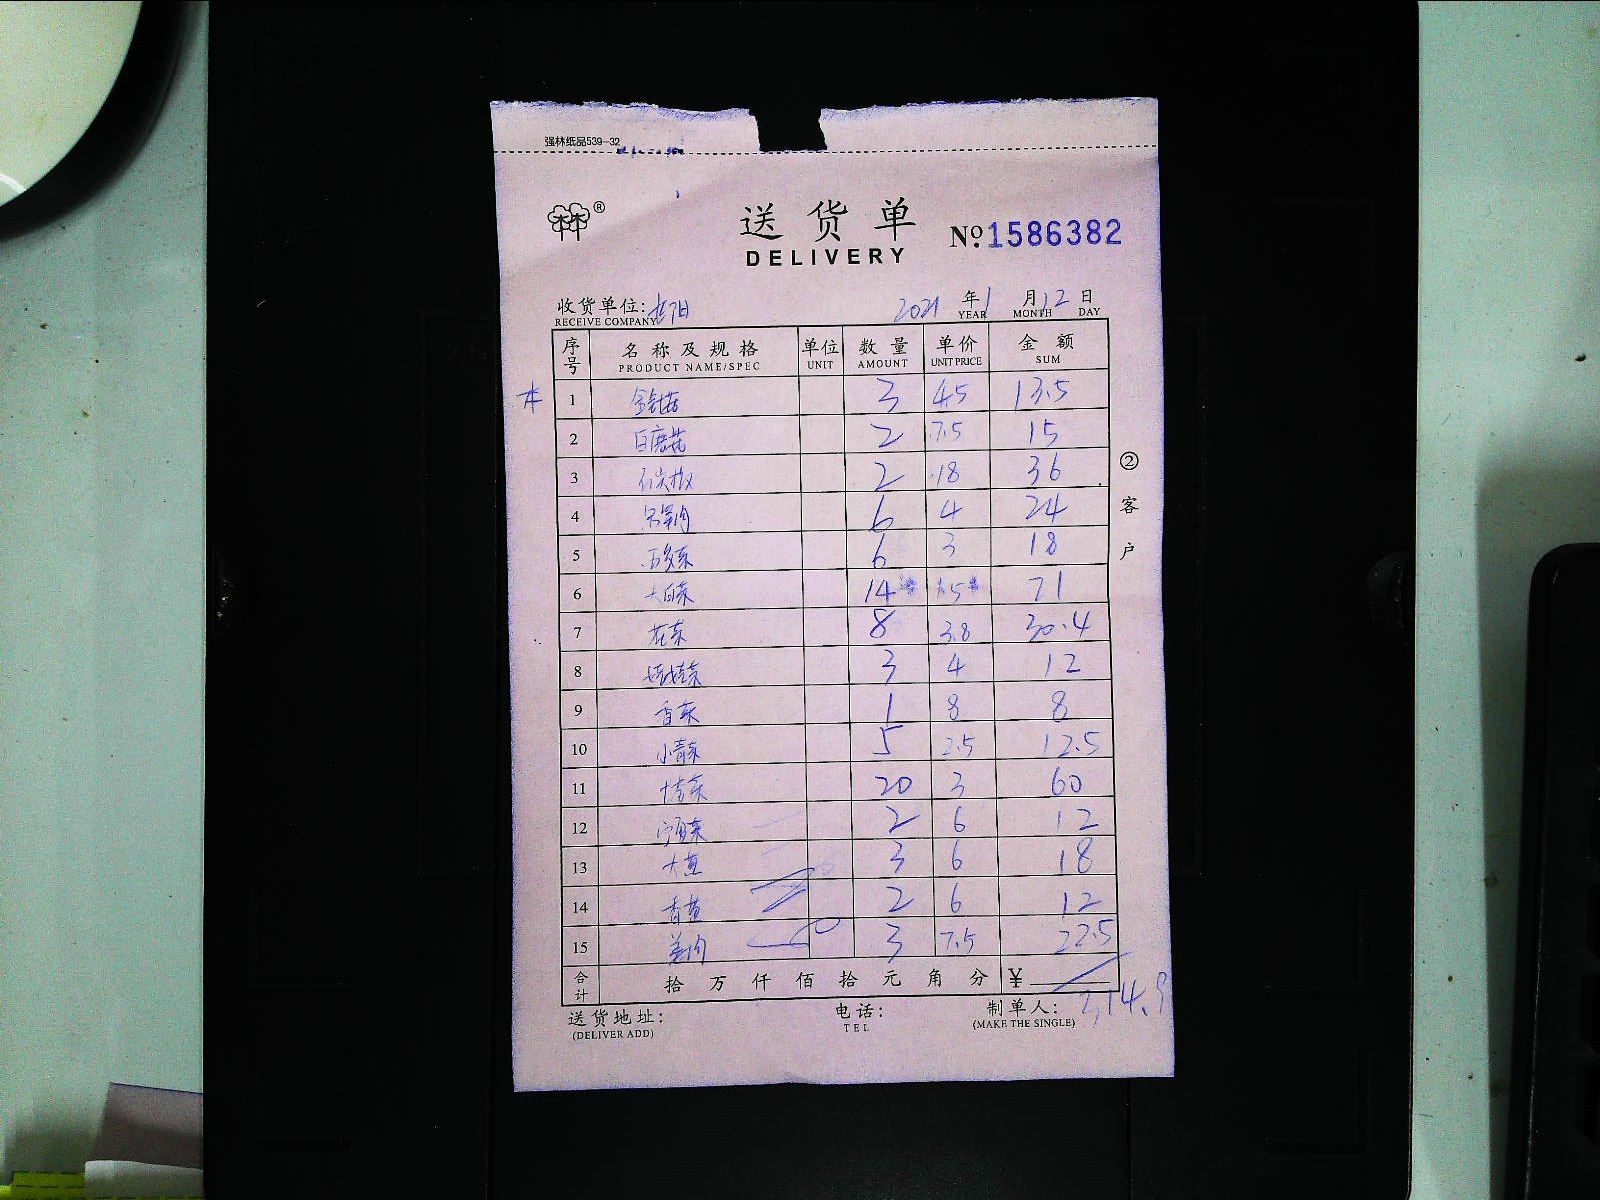 强林纸品539-32
® 送货单 №1586382
DELIVERY
收货单位: 2021 年 1 月 12 日
RECEIVE COMPANY YEAR MONTH DAY
序号 名称及规格 单位 数量 单价 金额
PRODUCT NAME/SPEC UNIT AMOUNT UNIT PRICE SUM
1 金针菇 3 4.5 13.5
2 2 7.5 15
3 2 18 36
4 6 4 24
5 6 3 18
6 大白菜 14 1.5 21
7 花菜 8 3.8 30.4
8 娃娃菜 3 4 12
9 香菜 1 8 8
10 小青菜 5 2.5 12.5
11 20 3 60
12 2 6 12
13 大 3 6 18
14 香 2 6 12
15 3 7.5 22.5
合计 拾 万 仟 佰 拾 元 角 分 ¥
314.9
送货地址: 电话: 制单人:
(DELIVER ADD) TEL (MAKE THE SINGLE)
②客户